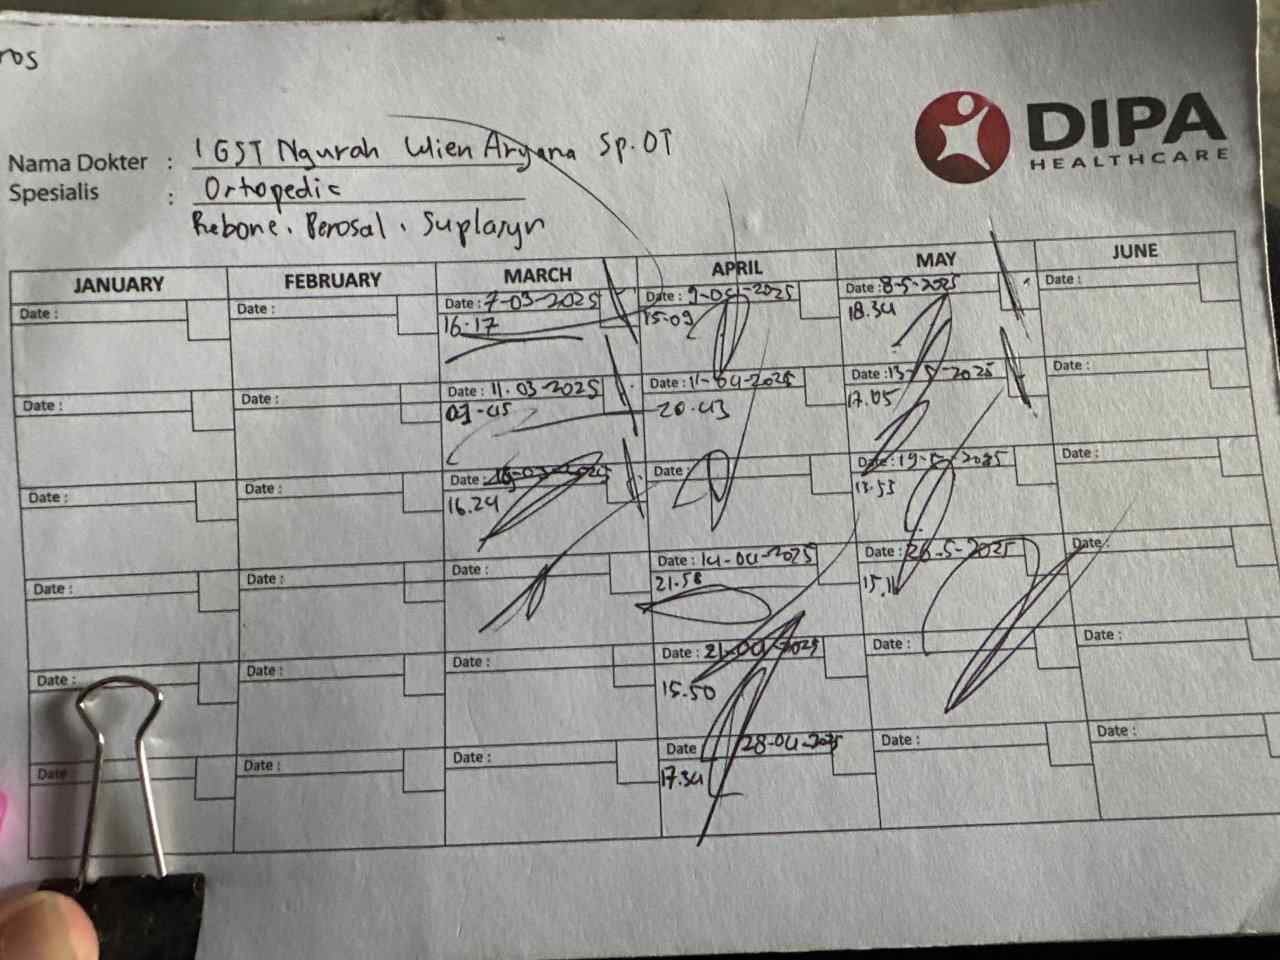 ros
DIPA
HEALTHCARE
Nama Dokter : I GST Ngurah Wien Aryana Sp.OT
Spesialis : Ortopedic
Rebone. Perosal. Suplasyn
JANUARY FEBRUARY MARCH APRIL MAY JUNE
Date : Date : Date : 7-03-2025 Date : 9-04-2025 Date : 8-5-2025 Date :
16.17 15.09 18.34
Date : Date : Date : 11.03-2025 Date : 11-04-2025 Date : 13-5-2025 Date :
09-45 20.43 17.05
Date : Date : Date : Date : Date : 19-5-2025 Date :
16.24 13.53
Date : Date : Date : Date : 14-04-2025 Date : 26-5-2025 Date :
21.58 15.11
Date : Date : Date : Date : 21-04-2025 Date : Date :
15.50
Date : Date : Date : Date 28-04-2025 Date : Date :
17.34